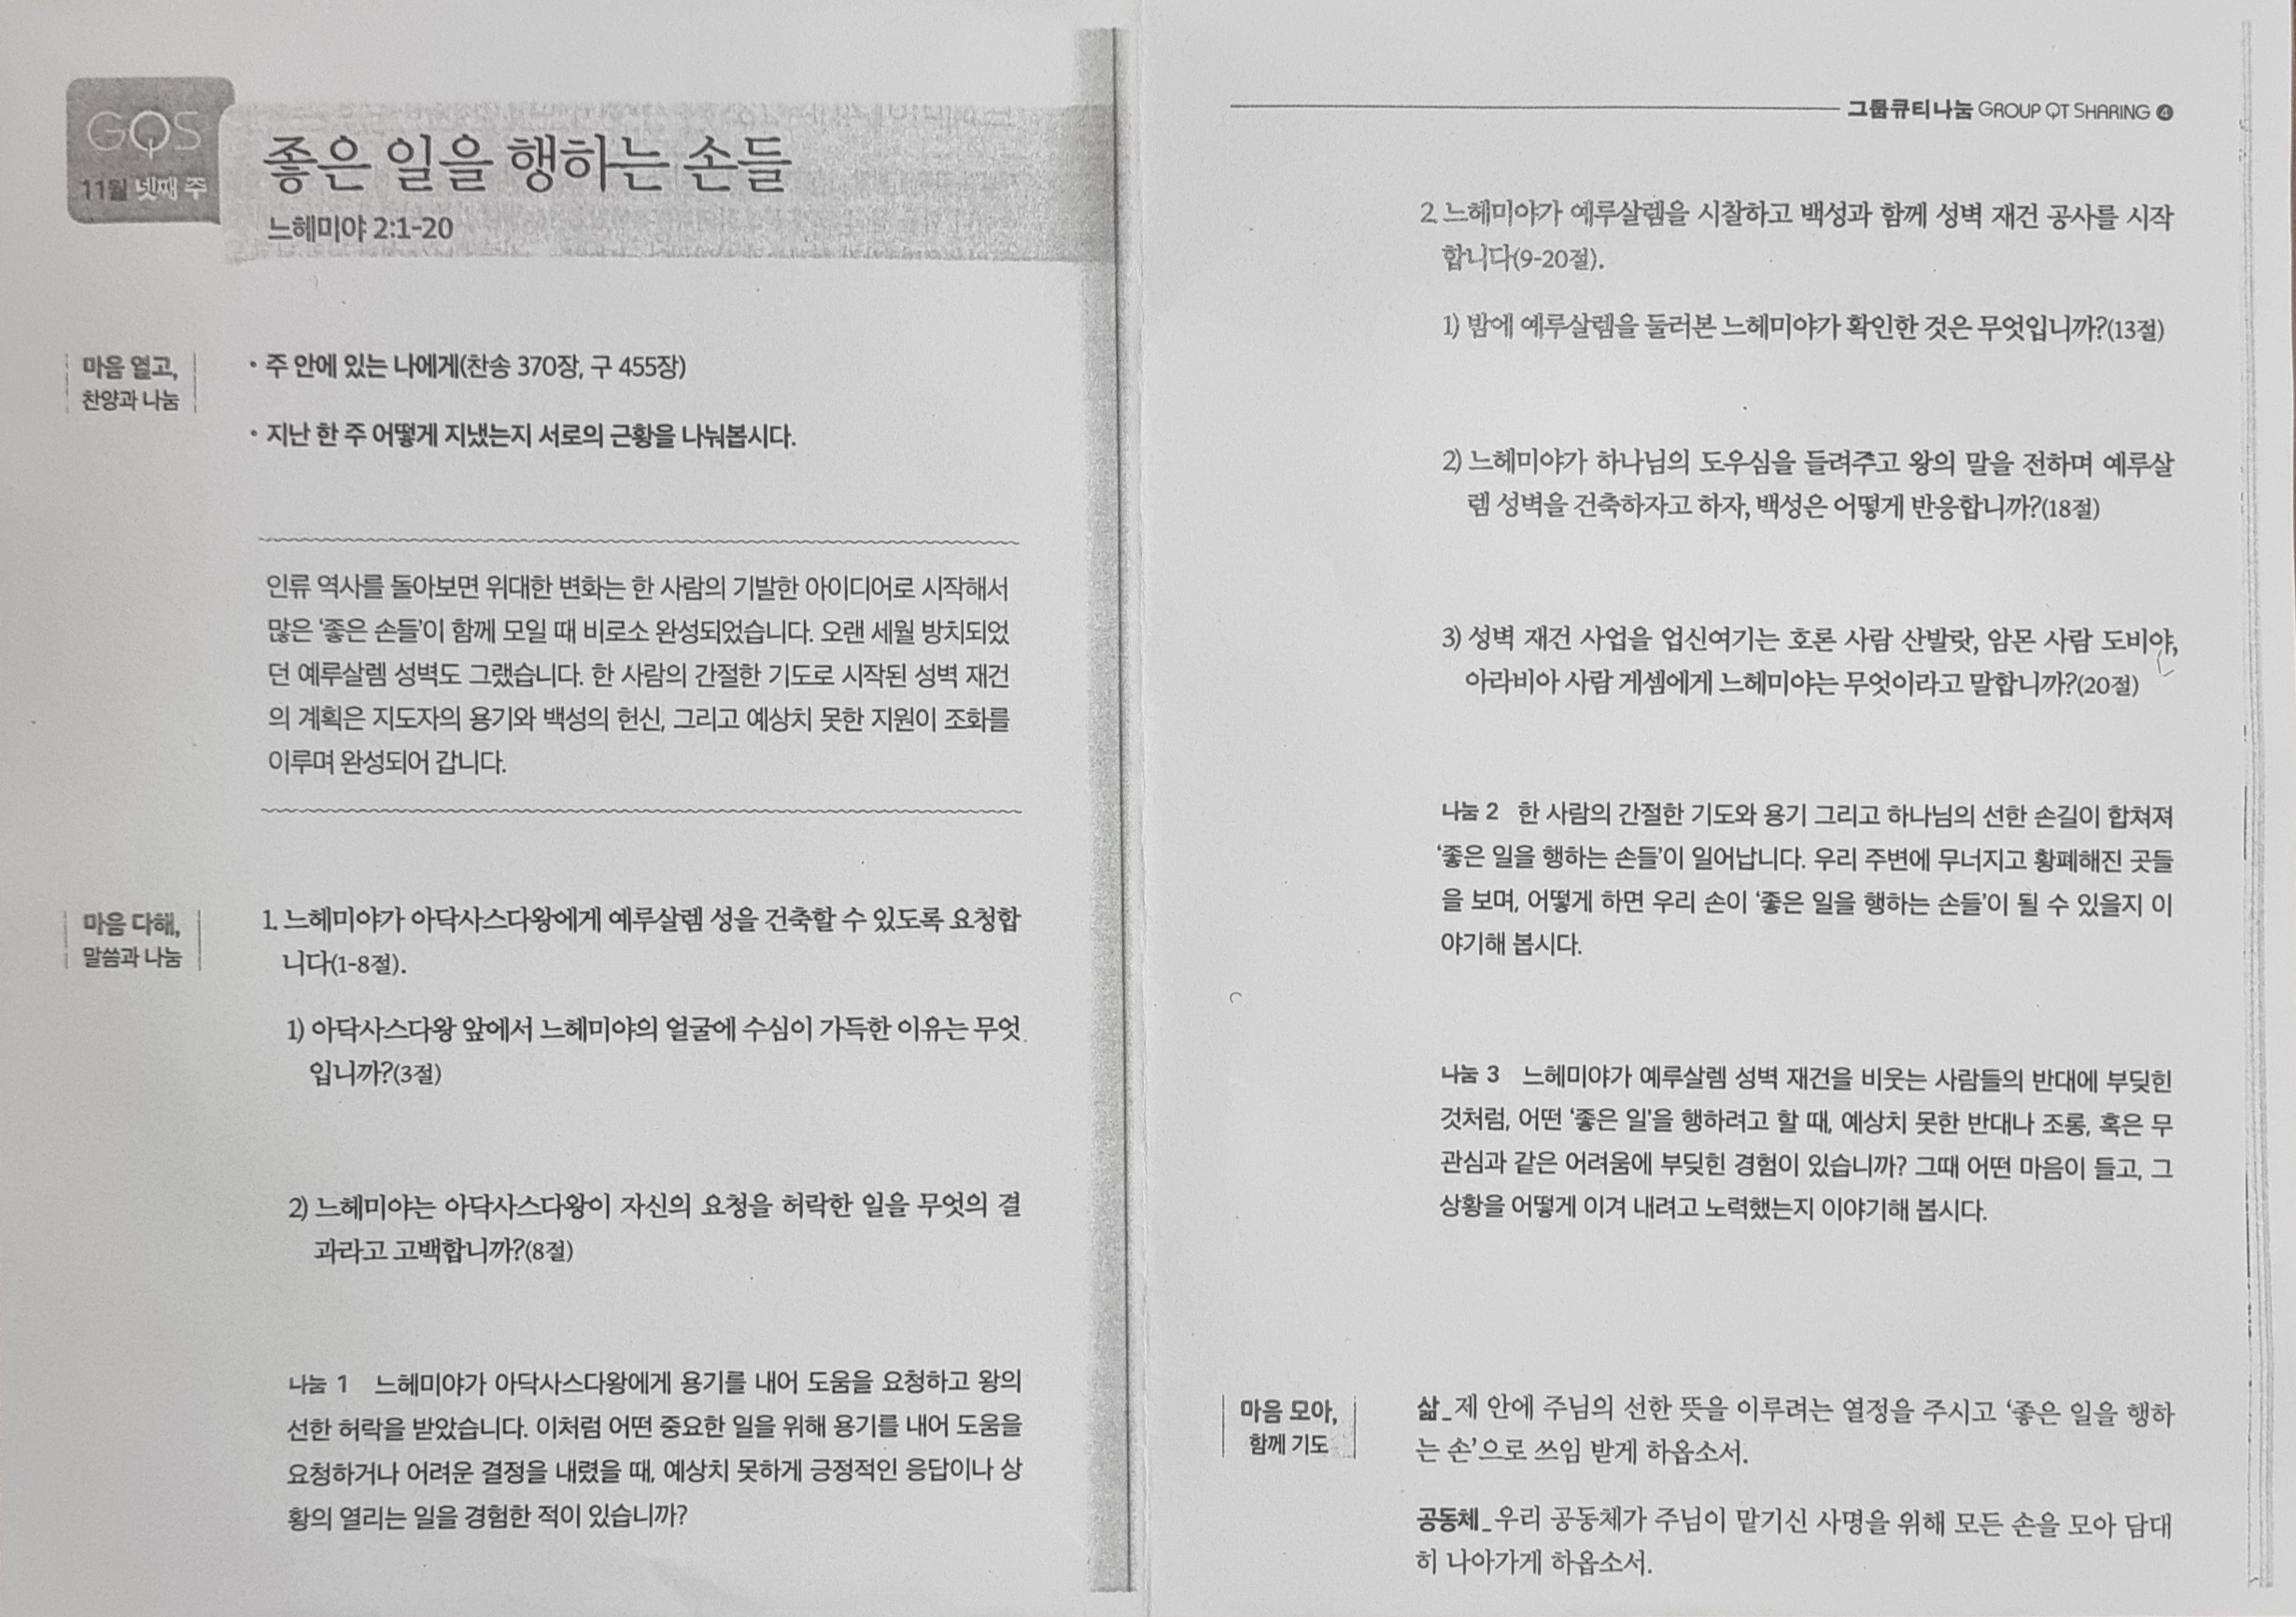 GQS
11월 넷째 주
좋은 일을 행하는 손들
느헤미야 2:1-20
마음 열고,
찬양과 나눔
• 주 안에 있는 나에게(찬송 370장, 구 455장)
• 지난 한 주 어떻게 지냈는지 서로의 근황을 나눠봅시다.
인류 역사를 돌아보면 위대한 변화는 한 사람의 기발한 아이디어로 시작해서
많은 ‘좋은 손들’이 함께 모일 때 비로소 완성되었습니다. 오랜 세월 방치되었
던 예루살렘 성벽도 그랬습니다. 한 사람의 간절한 기도로 시작된 성벽 재건
의 계획은 지도자의 용기와 백성의 헌신, 그리고 예상치 못한 지원이 조화를
이루며 완성되어 갑니다.
마음 다해,
말씀과 나눔
1. 느헤미야가 아닥사스다왕에게 예루살렘 성을 건축할 수 있도록 요청합
니다(1-8절).
1) 아닥사스다왕 앞에서 느헤미야의 얼굴에 수심이 가득한 이유는 무엇
입니까?(3절)
2) 느헤미야는 아닥사스다왕이 자신의 요청을 허락한 일을 무엇의 결
과라고 고백합니까?(8절)
나눔 1 느헤미야가 아닥사스다왕에게 용기를 내어 도움을 요청하고 왕의
선한 허락을 받았습니다. 이처럼 어떤 중요한 일을 위해 용기를 내어 도움을
요청하거나 어려운 결정을 내렸을 때, 예상치 못하게 긍정적인 응답이나 상
황의 열리는 일을 경험한 적이 있습니까?
그룹큐티나눔 GROUP QT SHARING ❹
2. 느헤미야가 예루살렘을 시찰하고 백성과 함께 성벽 재건 공사를 시작
합니다(9-20절).
1) 밤에 예루살렘을 둘러본 느헤미야가 확인한 것은 무엇입니까?(13절)
2) 느헤미야가 하나님의 도우심을 들려주고 왕의 말을 전하며 예루살
렘 성벽을 건축하자고 하자, 백성은 어떻게 반응합니까?(18절)
3) 성벽 재건 사업을 업신여기는 호론 사람 산발랏, 암몬 사람 도비야,
아라비아 사람 게셈에게 느헤미야는 무엇이라고 말합니까?(20절)
나눔 2 한 사람의 간절한 기도와 용기 그리고 하나님의 선한 손길이 합쳐져
‘좋은 일을 행하는 손들’이 일어납니다. 우리 주변에 무너지고 황폐해진 곳들
을 보며, 어떻게 하면 우리 손이 ‘좋은 일을 행하는 손들’이 될 수 있을지 이
야기해 봅시다.
나눔 3 느헤미야가 예루살렘 성벽 재건을 비웃는 사람들의 반대에 부딪힌
것처럼, 어떤 ‘좋은 일’을 행하려고 할 때, 예상치 못한 반대나 조롱, 혹은 무
관심과 같은 어려움에 부딪힌 경험이 있습니까? 그때 어떤 마음이 들고, 그
상황을 어떻게 이겨 내려고 노력했는지 이야기해 봅시다.
마음 모아,
함께 기도
삶_제 안에 주님의 선한 뜻을 이루려는 열정을 주시고 ‘좋은 일을 행하
는 손’으로 쓰임 받게 하옵소서.
공동체_우리 공동체가 주님이 맡기신 사명을 위해 모든 손을 모아 담대
히 나아가게 하옵소서.